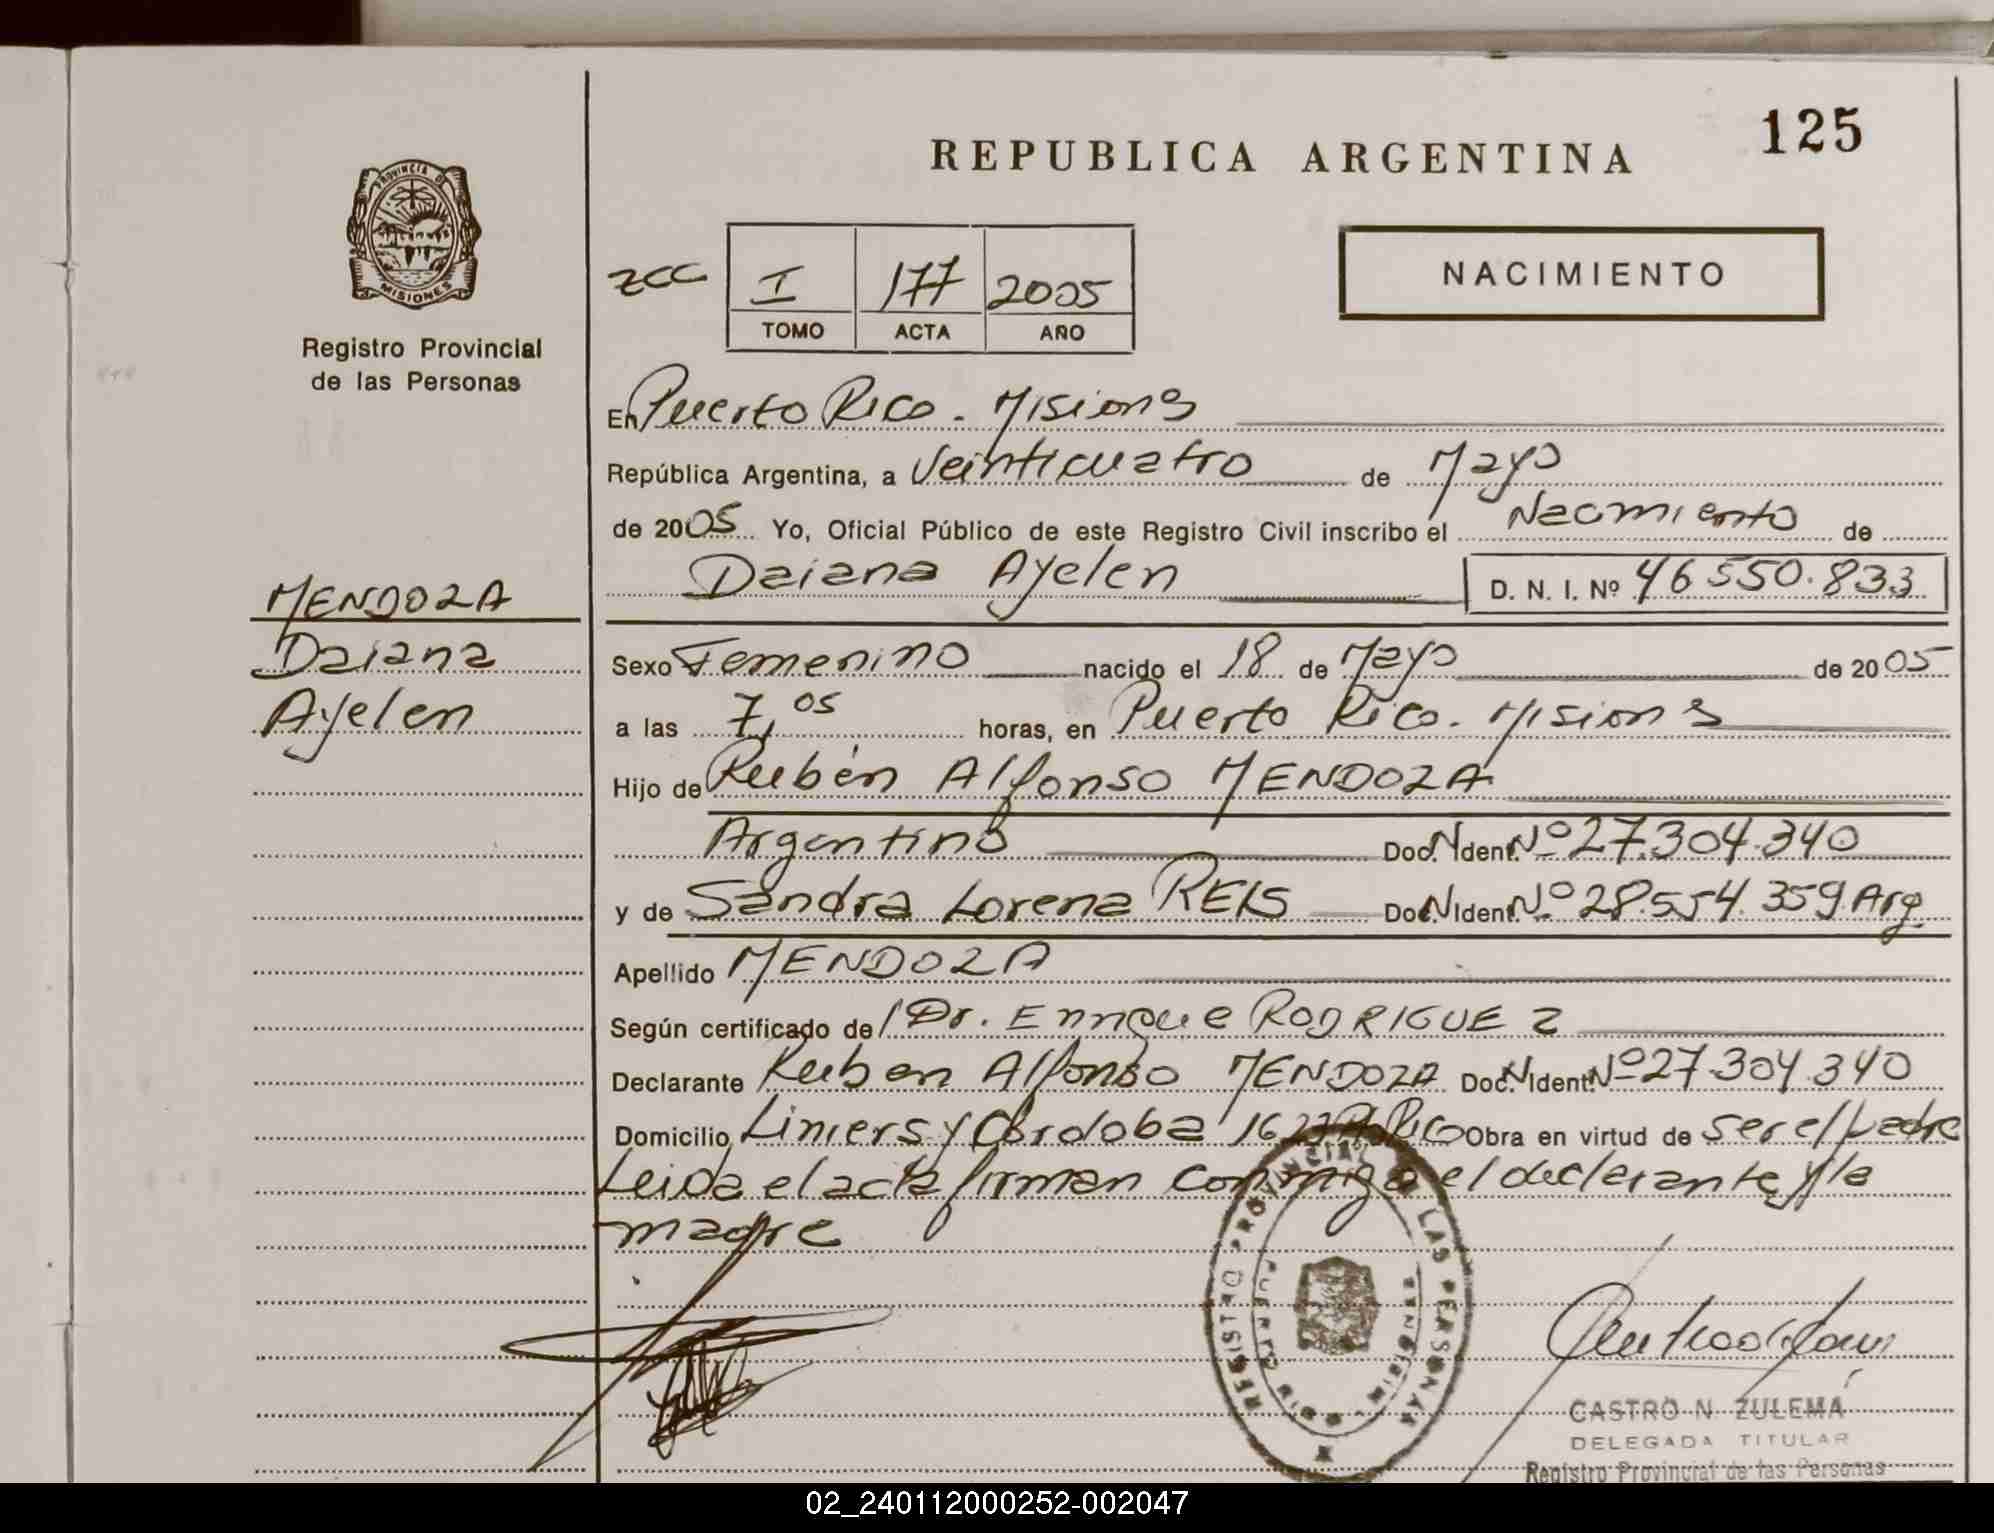 125
REPUBLICA ARGENTINA
PROVINCIA DE
MISIONES
Registro Provincial
de las Personas
ZCC I 177 2005
TOMO ACTA AÑO
NACIMIENTO
En Puerto Rico - Misiones
República Argentina, a Veinticuatro de Mayo
de 2005 Yo, Oficial Público de este Registro Civil inscribo el Nacimiento de
Daiana Ayelen D. N. I. Nº 46550.833
MENDOZA
Daiana
Ayelen
Sexo Femenino nacido el 18 de Mayo de 2005
a las 7,05 horas, en Puerto Rico - Misiones
Hijo de Rubén Alfonso MENDOZA
Argentino Doc. N Ident. Nº 27.304.340
y de Sandra Lorena REIS Doc. N Ident. Nº 28.554.359 Arg.
Apellido MENDOZA
Según certificado del Dr. Enrique RODRIGUEZ
Declarante Ruben Alfonso MENDOZA Doc. N Ident. Nº 27.304.340
Domicilio Liniers y Córdoba Rico Obra en virtud de ser el padre
Leida el acta firman conmigo el declarante y la
madre
REGISTRO PROVINCIAL DE LAS PERSONAS
PUERTO RICO MISIONES
CASTRO N. ZULEMA
DELEGADA TITULAR
Registro Provincial de las Personas
02_240112000252-002047